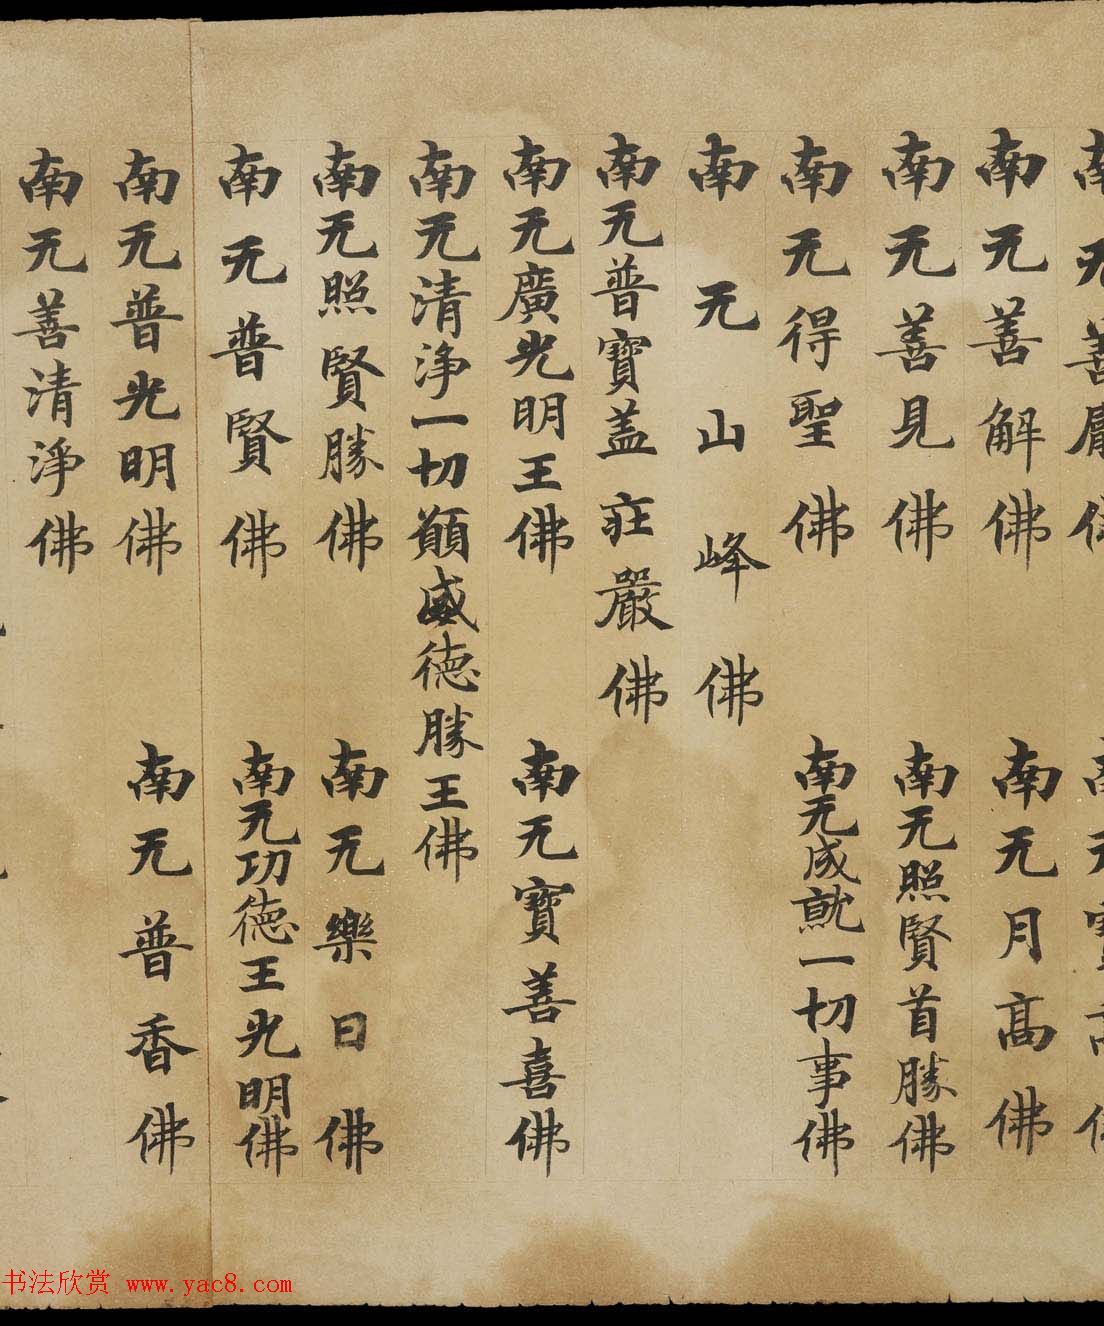 南无善佛 南无寶高佛
南无善解佛 南无月高佛
南无善見佛 南无照賢首勝佛
南无得聖佛 南无成就一切事佛
南无山峰佛
南无普寶盖庄嚴佛
南无廣光明王佛 南无寶善喜佛
南无清淨一切願威德勝王佛
南无照賢勝佛 南无樂日佛
南无普賢佛 南无功德王光明佛
南无普光明佛 南无普香佛
南无善清淨佛
书法欣赏 www.yac8.com